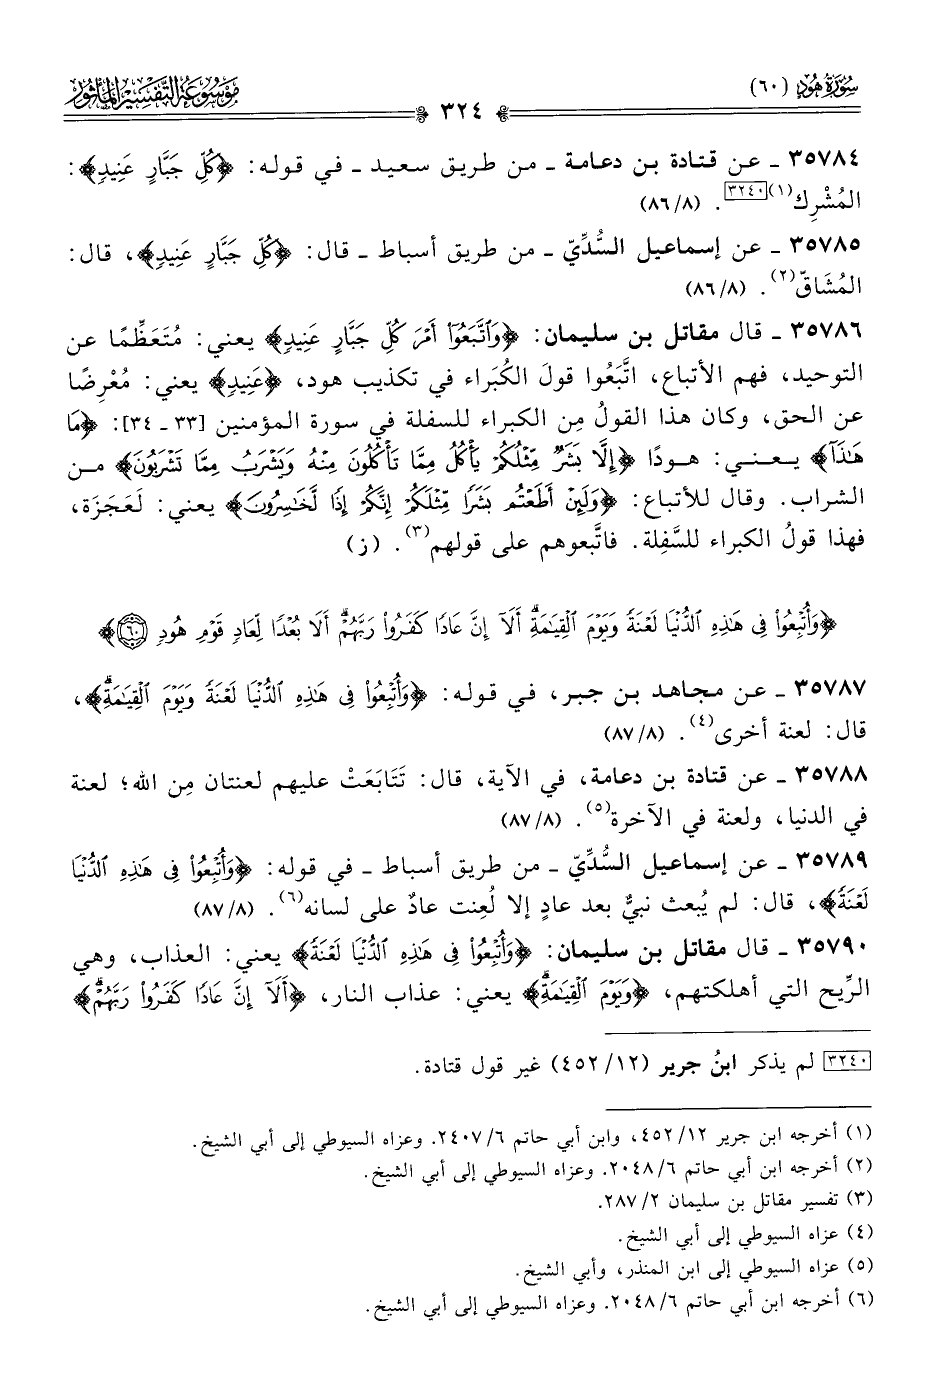 سُورَةُ هُودٍ (٦٠)
٣٢٤
مَوْسُوعَةُ التَّفْسِيرِ المَأْثُورِ
٣٥٧٨٤ ـ عن قتادة بن دعامة ـ من طريق سعيد ـ في قوله: ﴿كُلِّ جَبَّارٍ عَنِيدٍ﴾:
المُشْرِك(١)[٣٢٤٠]. (٨/٨٦)
٣٥٧٨٥ ـ عن إسماعيل السُّدِّيّ ـ من طريق أسباط ـ قال: ﴿كُلِّ جَبَّارٍ عَنِيدٍ﴾، قال:
المُشَاقّ(٢). (٨/٨٦)
٣٥٧٨٦ ـ قال مقاتل بن سليمان: ﴿وَٱتَّبَعُوٓا۟ أَمْرَ كُلِّ جَبَّارٍ عَنِيدٍ﴾ يعني: مُتَعَظِّمًا عن
التوحيد، فهم الأتباع، اتَّبَعُوا قولَ الكُبَراء في تكذيب هود، ﴿عَنِيدٍ﴾ يعني: مُعْرِضًا
عن الحق، وكان هذا القولُ مِن الكبراء للسفلة في سورة المؤمنين [٣٣ ـ ٣٤]: ﴿مَا
هَـٰذَآ﴾ يـعـنـي: هـودًا ﴿إِلَّا بَشَرٌ مِّثْلُكُمْ يَأْكُلُ مِمَّا تَأْكُلُونَ مِنْهُ وَيَشْرَبُ مِمَّا تَشْرَبُونَ﴾ مـن
الشراب. وقال للأتباع: ﴿وَلَئِنْ أَطَعْتُم بَشَرًا مِّثْلَكُمْ إِنَّكُمْ إِذًا لَّخَـٰسِرُونَ﴾ يعني: لَعَجَزَة،
فهذا قولُ الكبراء للسَّفِلة. فاتَّبعوهم على قولهم(٣). (ز)
﴿وَأُتْبِعُوا۟ فِى هَـٰذِهِ ٱلدُّنْيَا لَعْنَةً وَيَوْمَ ٱلْقِيَـٰمَةِۗ أَلَآ إِنَّ عَادًا كَفَرُوا۟ رَبَّهُمْۗ أَلَا بُعْدًا لِّعَادٍ قَوْمِ هُودٍ ٦٠﴾
٣٥٧٨٧ ـ عن مجاهد بن جبر، في قوله: ﴿وَأُتْبِعُوا۟ فِى هَـٰذِهِ ٱلدُّنْيَا لَعْنَةً وَيَوْمَ ٱلْقِيَـٰمَةِۗ﴾،
قال: لعنة أخرى(٤). (٨/٨٧)
٣٥٧٨٨ ـ عن قتادة بن دعامة، في الآية، قال: تَتَابَعَتْ عليهم لعنتان مِن الله؛ لعنة
في الدنيا، ولعنة في الآخرة(٥). (٨/٨٧)
٣٥٧٨٩ ـ عن إسماعيل السُّدِّيّ ـ من طريق أسباط ـ في قوله: ﴿وَأُتْبِعُوا۟ فِى هَـٰذِهِ ٱلدُّنْيَا
لَعْنَةً﴾، قال: لم يُبعث نبيٌّ بعد عادٍ إلا لُعِنت عادٌ على لسانه(٦). (٨/٨٧)
٣٥٧٩٠ ـ قال مقاتل بن سليمان: ﴿وَأُتْبِعُوا۟ فِى هَـٰذِهِ ٱلدُّنْيَا لَعْنَةً﴾ يعني: العذاب، وهي
الرِّيح التي أهلكتهم، ﴿وَيَوْمَ ٱلْقِيَـٰمَةِۗ﴾ يعني: عذاب النار، ﴿أَلَآ إِنَّ عَادًا كَفَرُوا۟ رَبَّهُمْۗ﴾
[٣٢٤٠] لم يذكر ابنُ جرير (١٢/ ٤٥٢) غير قول قتادة.
(١) أخرجه ابن جرير ١٢/ ٤٥٢، وابن أبي حاتم ٦/ ٢٤٠٧. وعزاه السيوطي إلى أبي الشيخ.
(٢) أخرجه ابن أبي حاتم ٦/ ٢٠٤٨. وعزاه السيوطي إلى أبي الشيخ.
(٣) تفسير مقاتل بن سليمان ٢/ ٢٨٧.
(٤) عزاه السيوطي إلى أبي الشيخ.
(٥) عزاه السيوطي إلى ابن المنذر، وأبي الشيخ.
(٦) أخرجه ابن أبي حاتم ٦/ ٢٠٤٨. وعزاه السيوطي إلى أبي الشيخ.